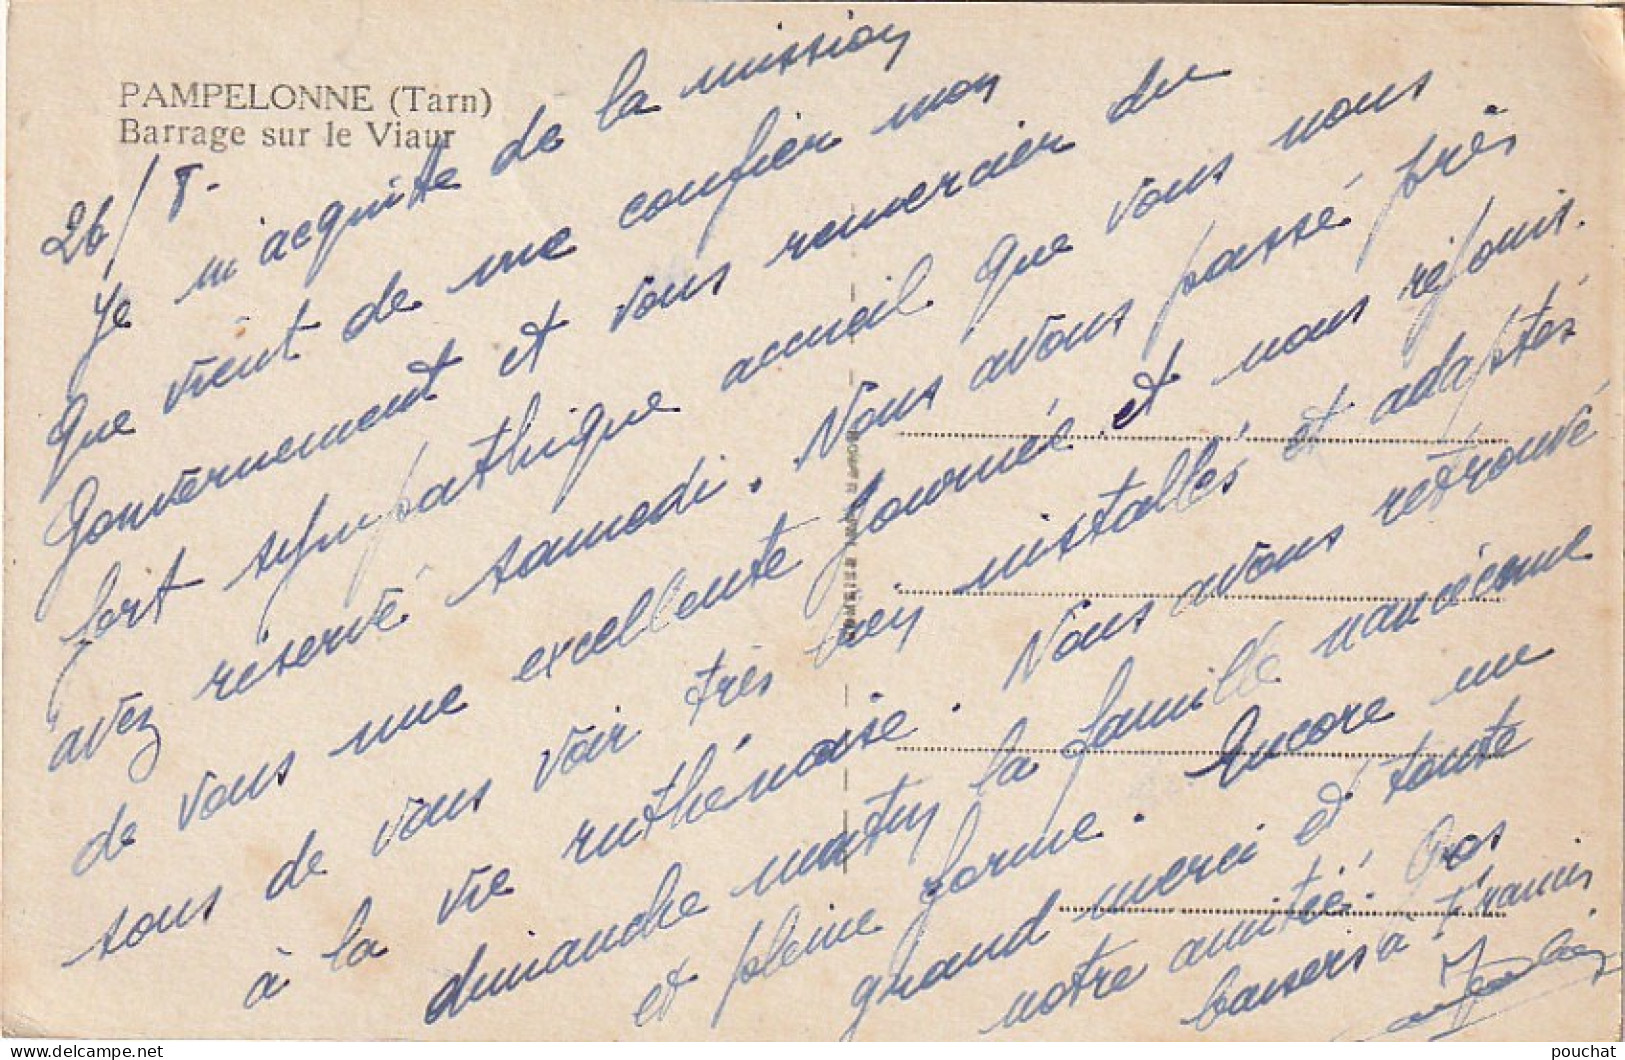 PAMPELONNE (Tarn)
Barrage sur le Viaur
26/8.
Je m'acquitte de la mission
que vient de me confier mon
Gouvernement et vous remercier du
fort sympathique accueil que vous nous
avez réservé samedi. Nous avons passé près
de vous une excellente journée et nous réjouis.
sons de vous voir très bien installés et adaptés
à la vie ruthénoise. Nous avons retrouvé
dimanche matin la famille nancéienne
et pleine forme. Encore un
grand merci et toute
notre amitié. Gros
baisers à Francis
pouchat